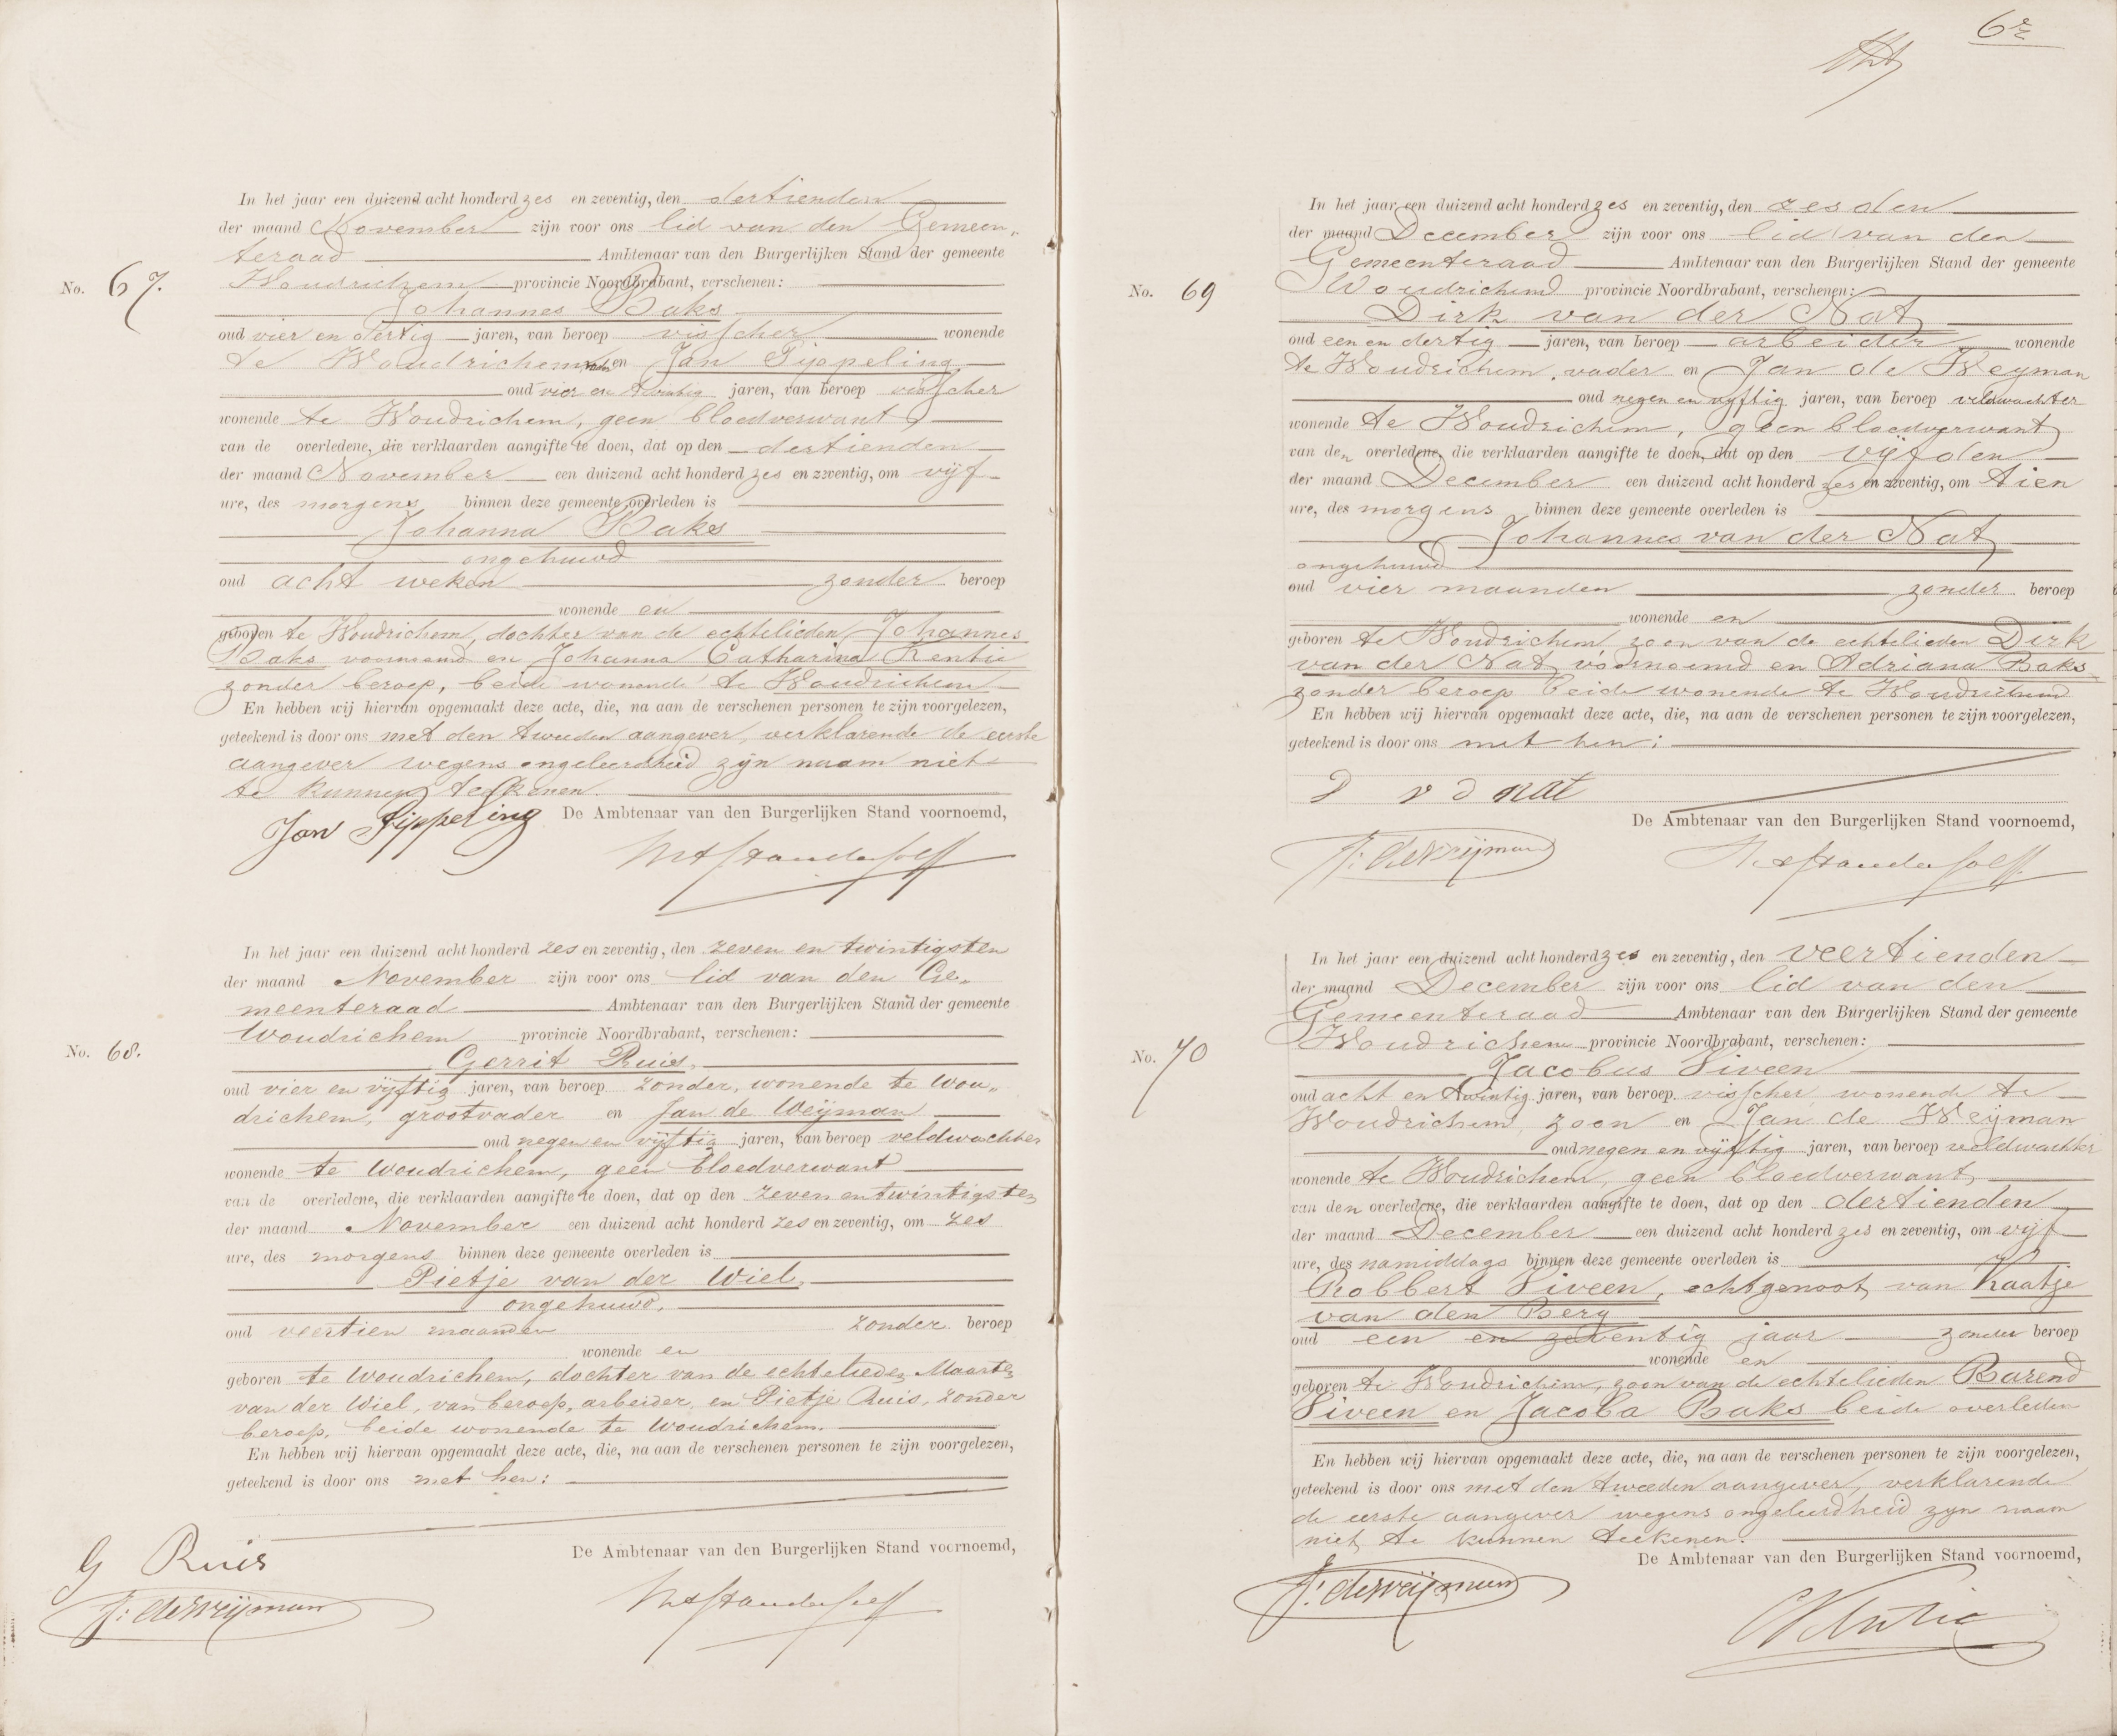 In het jaar een duizend acht honderd zes en zeventig, den dertienden
der maand November zijn voor ons lid van den Gemeen„
teraad Ambtenaar van den Burgerlijken Stand der gemeente
No. 67. Woudrichem provincie Noordbrabant, verschenen:
Johannes Baks
oud vier en dertig jaren, van beroep visscher wonende
te Woudrichem en Jan Pippeling
oud vier en twintig jaren, van beroep visscher
wonende te Woudrichem, geen bloedverwant
van de overledene, die verklaarden aangifte te doen, dat op den dertienden
der maand November een duizend acht honderd zes en zeventig, om vijf
ure, des morgens binnen deze gemeente overleden is
Johanna Baks
ongehuwd
oud acht weken zonder beroep
wonende en
geboren te Woudrichem, dochter van de echtelieden Johannes
Baks voornoemd en Johanna Catharina Rentie
zonder beroep, beide wonende te Woudrichem
En hebben wij hiervan opgemaakt deze acte, die, na aan de verschenen personen te zijn voorgelezen,
geteekend is door ons met den tweeden aangever, verklarende de eerste
aangever wegens ongeleerdheid zijn naam niet
te kunnen teekenen.
Jan Pippeling De Ambtenaar van den Burgerlijken Stand voornoemd,
In het jaar een duizend acht honderd zes en zeventig, den zeven en twintigsten
der maand November zijn voor ons lid van den Ge„
meenteraad Ambtenaar van den Burgerlijken Stand der gemeente
Woudrichem provincie Noordbrabant, verschenen:
No. 68. Gerrit Ruis,
oud vier en vijftig jaren, van beroep zonder, wonende te Wou„
drichem, grootvader en Jan de Weijman
oud negen en vijftig jaren, van beroep veldwachter
wonende te Woudrichem, geen bloedverwant
van de overledene, die verklaarden aangifte te doen, dat op den zeven en twintigsten
der maand November een duizend acht honderd zes en zeventig, om zes
ure, des morgens binnen deze gemeente overleden is
Pietje van der Wiel,
ongehuwd,
oud veertien maanden zonder beroep
wonende en
geboren te Woudrichem, dochter van de echtelieden Maarten
van der Wiel, van beroep, arbeider, en Pietje Ruis, zonder
beroep, beide wonende te Woudrichem.
En hebben wij hiervan opgemaakt deze acte, die, na aan de verschenen personen te zijn voorgelezen,
geteekend is door ons met hen:
G Ruis De Ambtenaar van den Burgerlijken Stand voornoemd,
J: deWeijman
In het jaar een duizend acht honderd zes en zeventig, den zesden
der maand December zijn voor ons lid van den
Gemeenteraad Ambtenaar van den Burgerlijken Stand der gemeente
No. 69 Woudrichem provincie Noordbrabant, verschenen:
Dirk van der Nat
oud een en dertig jaren, van beroep arbeider wonende
te Woudrichem, vader en Jan de Weyman
oud negen en vyftig jaren, van beroep veldwachter
wonende te Woudrichem, geen bloedverwant
van den overledene, die verklaarden aangifte te doen, dat op den vijfden
der maand December een duizend acht honderd zes en zeventig, om tien
ure, des morgens binnen deze gemeente overleden is
Johannes van der Nat
ongehuwd
oud vier maanden zonder beroep
wonende en
geboren te Woudrichem zoon van de echtelieden Dirk
van der Nat voornoemd en Adriana Baks
zonder beroep beide wonende te Woudrichem
En hebben wij hiervan opgemaakt deze acte, die, na aan de verschenen personen te zijn voorgelezen,
geteekend is door ons met hen:
D v d nat
De Ambtenaar van den Burgerlijken Stand voornoemd,
J: deWeijman
In het jaar een duizend acht honderd zes en zeventig, den veertienden
der maand December zijn voor ons lid van den
Gemeenteraad Ambtenaar van den Burgerlijken Stand der gemeente
No. 70 Woudrichem provincie Noordbrabant, verschenen:
Jacobus Viveen
oud acht en twintig jaren, van beroep visscher wonende te
Woudrichem, zoon en Jan de Weijman
oud negen en vijftig jaren, van beroep veldwachter
wonende te Woudrichem, geen bloedverwant,
van den overledene, die verklaarden aangifte te doen, dat op den dertienden
der maand December een duizend acht honderd zes en zeventig, om vijf
ure, des namiddags binnen deze gemeente overleden is
Robbert Viveen, echtgenoot van Kaatje
van den Berg
oud een en zeventig jaar zonder beroep
wonende en
geboren te Woudrichem, zoon van de echtelieden Barend
Viveen en Jacoba Baks beide overleden
En hebben wij hiervan opgemaakt deze acte, die, na aan de verschenen personen te zijn voorgelezen,
geteekend is door ons met den tweeden aangever, verklarende
de eerste aangever wegens ongeleerdheid zyn naam
niet te kunnen teekenen.
De Ambtenaar van den Burgerlijken Stand voornoemd,
J: deWeijman